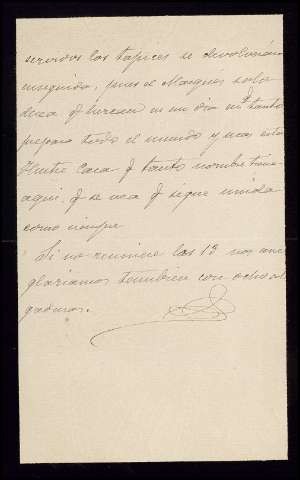 servidos los tapices se devolverán
enseguida, pues el Marques solo
desea q. luzcan en un dia en q. tanto
prepara todo el mundo y mas esta
Ilustre Casa q. tanto nombre tiene
aqui, q. se vea q. sigue unida
como siempre
Si no reunime los 13 nos arre
glariamos tambien con ocho ol
gadmos.